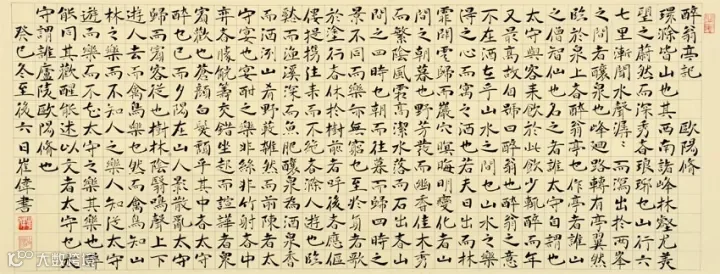 醉翁亭記 歐陽修
環滁皆山也其西南諸峰林壑尤美
望之蔚然而深秀者琅琊也山行六
七里漸聞水聲潺〻而瀉出於兩峯
之間者釀泉也峰迴路轉有亭翼然
臨於泉上者醉翁亭也作亭者誰山
之僧智仙也名之者誰太守自謂也
太守與客來飲於此飲少輒醉而年
又最高故自號曰醉翁也醉翁之意
不在酒在乎山水之間也山水之樂
得之心而寓之酒也若夫日出而林
霏開雲歸而巖穴暝晦明變化者山
間之朝暮也野芳發而幽香佳木秀
而繁陰風霜高潔水落而石出者山
間之四時也朝而往暮而歸四時之
景不同而樂亦無窮也至於負者歌
於塗行者休於樹前者呼後者應傴
僂提攜往來而不絕者滁人遊也臨
谿而漁溪深而魚肥釀泉為酒泉香
而酒洌山肴野蔌雜然而前陳者太
守宴也宴酣之樂非絲非竹射者中
弈者勝觥籌交錯坐起而諠譁者眾
賓歡也蒼顏白髮頹乎其中者太守
醉也已而夕陽在山人影散亂太守
歸而賓客從也樹林陰翳鳴聲上下
遊人去而禽鳥樂也然而禽鳥知山
林之樂而不知人之樂人知從太守
遊而樂而不知太守之樂其樂也醉
能同其歡醒能述以文者太守也太
守謂誰廬陵歐陽修也
癸巳冬至後六日崔偉書